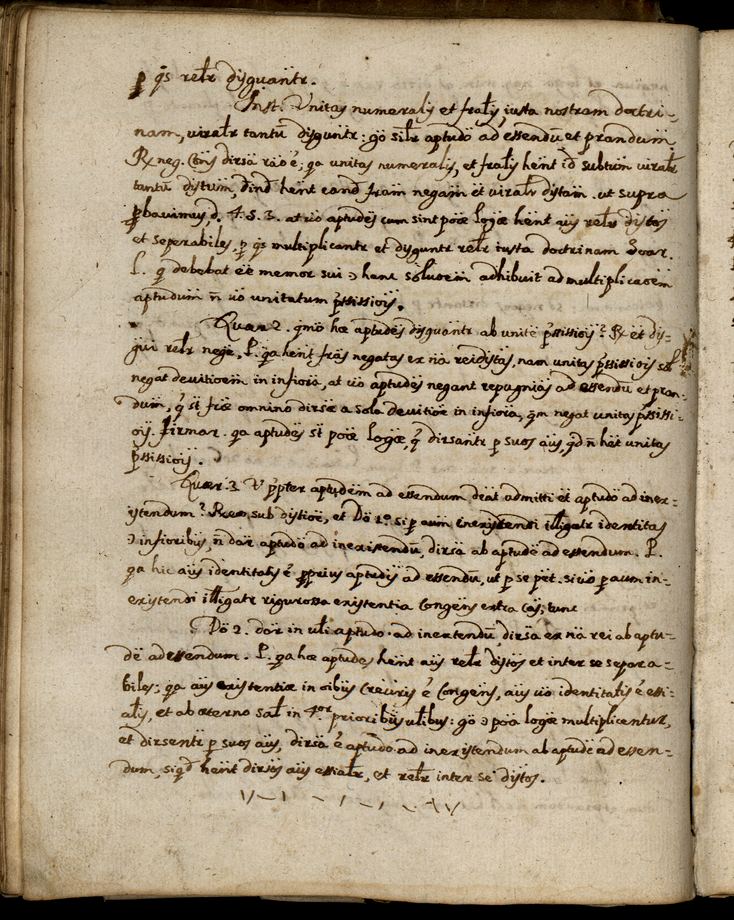 p qs relr distguantr.
Inst. Unitas numeralis et fralis iusta nostram doctri-
nam, viralr tantū distguntr: gō silr aptudō ad essendū et prandum.
Rx neg. Cōns dirsā rāo ē; qa unitas numeralis, et fralis hēnt id subtum viralr
tantū distum, dind hēnt eand fram negam et viralr distam. ut supra
pbavimus, d. 4. S. 3. at vō aptudēs cum sint poīæ logæ hēnt aūs relr distos
et seperabiles, p qs multiplicantr et distguntr relr iusta doctrinam Soar.
L. q debebat eē memor sui hanc solūoem adhibuit ad multiplicaoēm
aptudum n vō unitatum pssissiois.
Quær 2. qmō hæ aptudēs distguantr ab unitē pssissiois? Rx et dis-
gui relr nege, P. qa hēnt frās negatas ex nā rei distas, nam unitas pssissiois
negat devitioēm in infiora, at vō aptudēs negant repugniās ad essendū et pran-
dum, q st friæ omnino dirsæ a sola devitioē in infiora, qm negat unitas pssissi-
ois. firmar. qa aptudēs st poīæ logæ, q dirsantr p suos aūs, qd n hēt unitas
pssissiois.
Quær. 3. V ppter aptudēm ad essendum deāt admitti et aptudō ad inex-
istendum? Rxeo sub distioē, et Dō 1º. si p aum inexistendi illigatr identitas
infioribus, n dār aptudō ad inexistendū, dirsa ab aptudē ad essendum. P.
qa hic aūs identitatis ē pprius aptudis ad essendū, ut p se pēt. si vō p aum in-
existendi illigatr rigurossa existentia Congens extra cas; tunc
Dō 2. dār in uli aptudō ad inextendū, dirsa ex nā rei ab aptu-
dē ad essendum. P. qa hæ aptudēs hēnt aūs relr distos et inter se separa-
biles: qa aūs existentiæ in oibus Creuris ē Congens, aūs vō identitatis ē essi-
alis, et ab æterno sal in 4or prioribus ulibus: gō poīa logæ multiplicentur,
et dirsentr p suos aūs, dirsa ē aptudō ad inexistendum ab aptudē ad essen-
dum, siqd hēnt dirsos aūs essialr, et relr inter se distos.